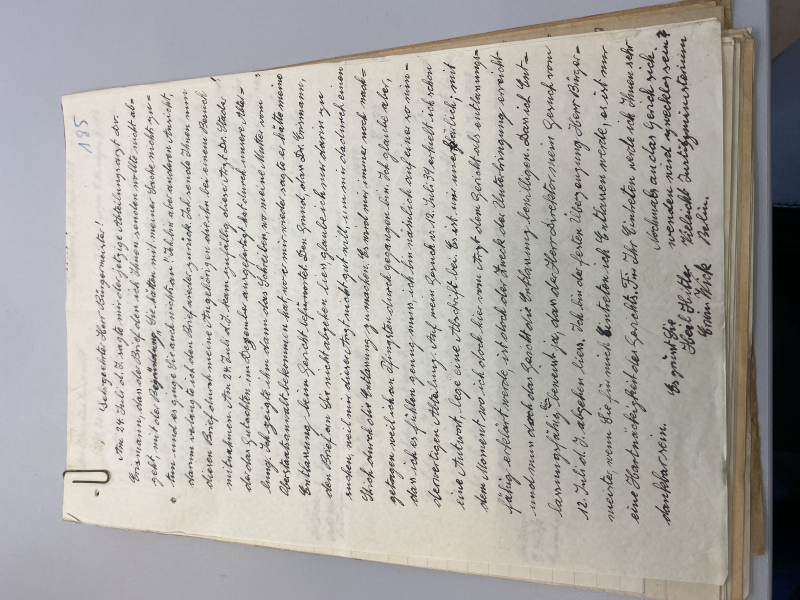 185
Sehrgeehrter Herr Bürgermeister!
Am 24. Juli d. J. sagte mir der jetzige Abteilungsarzt Dr.
Ensmann, dass der Brief den ich Ihnen senden wollte nicht ab-
geht, mit der Begründung, Sie hätten mit meiner Sache nichts zu-
tun und es ginge Sie auch nichts an. Ich bin aber anderer Ansicht,
darum verlangte ich den Brief wieder zurück. Ich sende Ihnen nun
diesen Brief durch meine Angehörigen die ihn bei einem Besuch
mitnehmen. Am 24. Juli d. J. kam zufällig dieser Arzt Dr. Stachi
der das Gutachten im Dezember ausgefertigt hat durch unsere Abtei-
lung. Ich zeigte ihm dann das Schreiben, wo meine Mutter vom
Oberstaatsanwalt bekommen hat, wo er mir wieder sagte er hätte meine
Entlassung beim Gericht befürwortet. Den Grund, dass Dr. Ensmann,
den Brief an Sie nicht abgehen liess, glaube ich nur darin zu
suchen, weil mir dieser Arzt nicht gut will, um mir dadurch einen
Strich durch die Entlassung zu machen. Es wird mir immer noch nach-
getragen weil ich an Pfingsten durchgegangen bin. Ich glaube aber,
dass ich es fühlen genug muss, ich bin nämlich auf einer so min-
derwertigen Abteilung. Auf mein Gesuch v. 12. Juli 39. erhielt ich schon
eine Antwort, lege eine Abschrift bei. Es ist mir unerklärlich, mit
dem Moment wo ich doch hier vom Arzt dem Gericht als entlassungs-
fähig erklärt werde, ist doch der Zweck der Unterbringung erreicht
und muss doch das Gericht die Entlassung bewilligen. Das ich Ent-
lassungsfähig bin, beweist ja, dass der Herr Direktor mein Gesuch vom
12. Juli d. J. abgehen liess. Ich bin der festen Überzeugung Herr Bürger-
meister, wenn Sie für mich Eintreten ich Entlassen werde, es ist nur
eine Hartnäckigkeit des Gerichts. Für Ihr Eintreten werde ich Ihnen sehr
dankbar sein.
Nochmals an das Gericht sich
wenden wird zwecklos sein?
Vieleicht Justizministerium
Berlin.
Es grüsst Sie
Heil Hitler